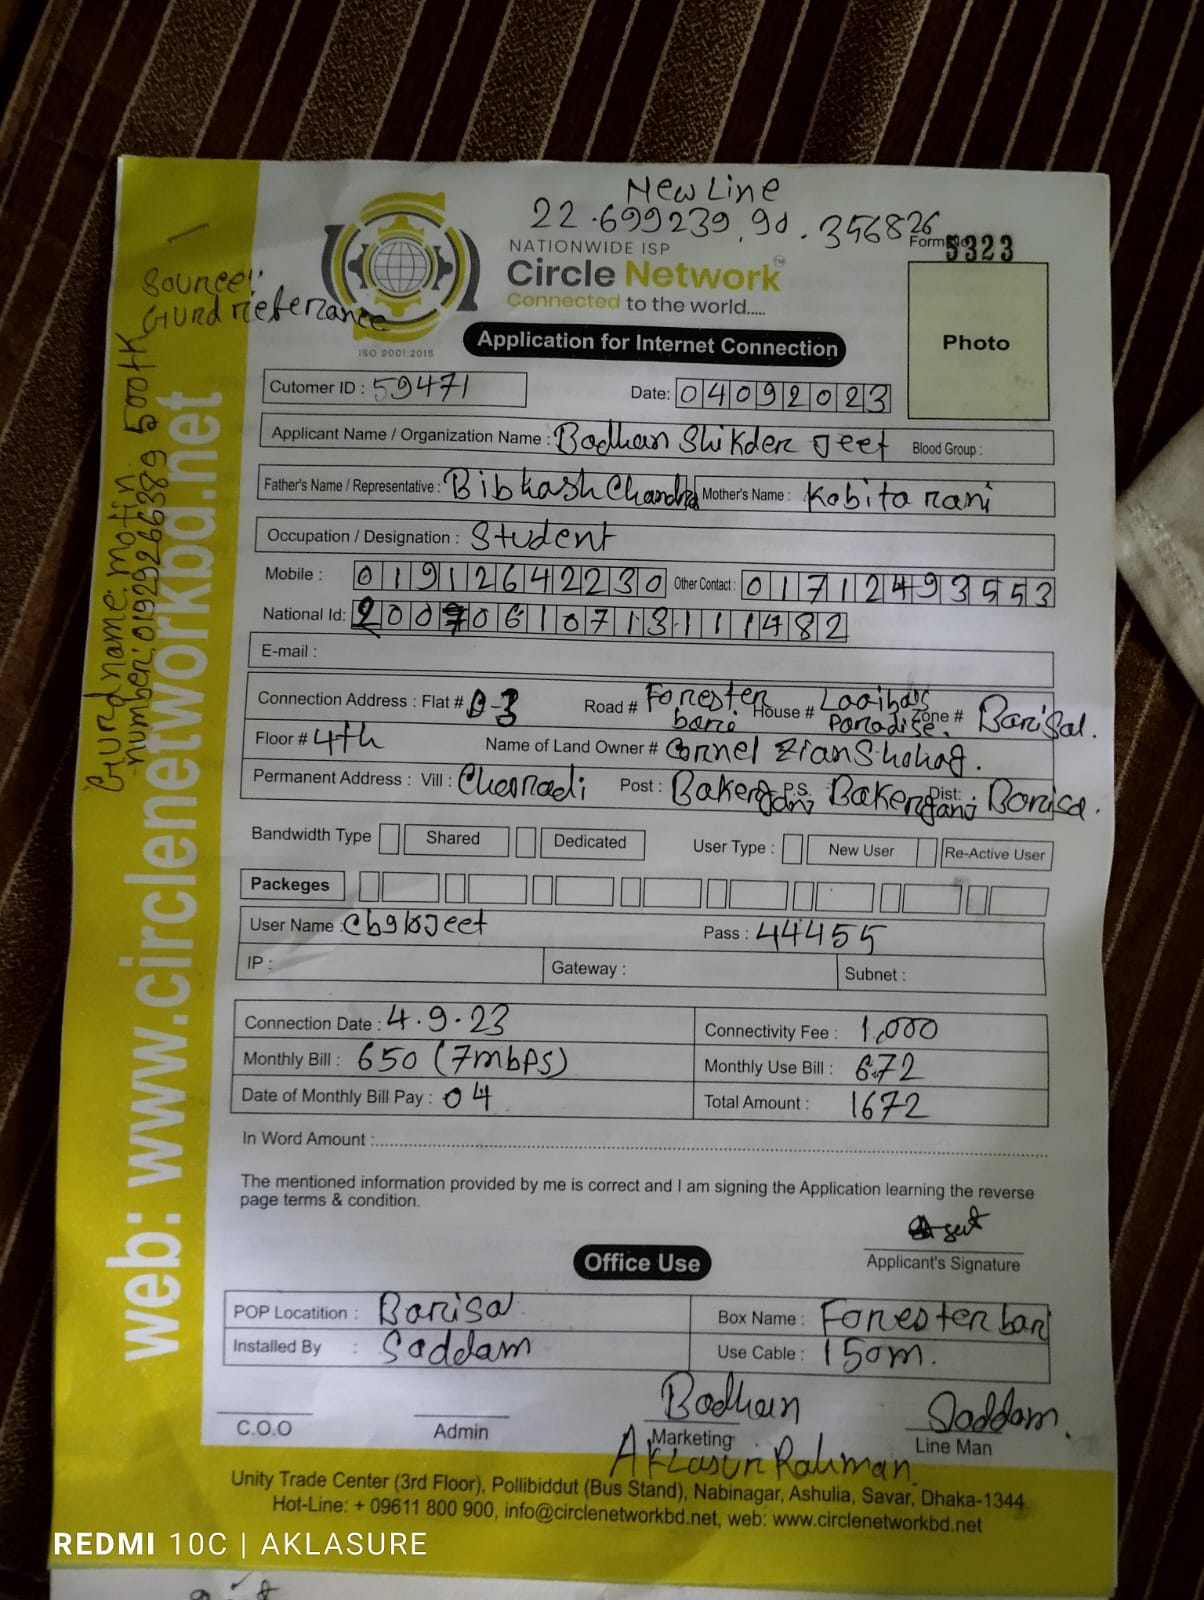 New Line
22.699239, 90.356826
Form 5323
NATIONWIDE ISP
Circle Network™
Connected to the world.....
ISO 9001:2015
Application for Internet Connection
Photo
Source:
Gurd reference
Gurd name: motin 500tk
number: 01929266389
web: www.circlenetworkbd.net
Cutomer ID : 59471
Date: 04092023
Applicant Name / Organization Name : Bodhan Shikder Jeet Blood Group :
Father's Name / Representative : Bibhash Chandra Mother's Name : Kobita rani
Occupation / Designation : Student
Mobile : 01912642230 Other Contact : 01712493553
National Id: 20070610713111482
E-mail :
Connection Address : Flat # B-3 Road # Forester bari House # Paradise. Zone # Barisal.
Floor # 4th Name of Land Owner # Cornel Zian Shohag.
Permanent Address : Vill : Post : Bakerganj P.S. Bakerganj Dist: Barisa.
Bandwidth Type Shared Dedicated User Type : New User Re-Active User
Packeges
User Name : Pass : 44455
IP : Gateway : Subnet :
Connection Date : 4.9.23 Connectivity Fee : 1,000
Monthly Bill : 650 (7mbps) Monthly Use Bill : 672
Date of Monthly Bill Pay : 04 Total Amount : 1672
In Word Amount :
The mentioned information provided by me is correct and I am signing the Application learning the reverse
page terms & condition.
Applicant's Signature
Office Use
POP Locatition : Barisal Box Name : Forester bari
Installed By : Saddam Use Cable : 150m.
Bodhan Saddam.
C.O.O Admin Marketing Line Man
Aklasur Rahman
Unity Trade Center (3rd Floor), Pollibiddut (Bus Stand), Nabinagar, Ashulia, Savar, Dhaka-1344
Hot-Line: + 09611 800 900, info@circlenetworkbd.net, web: www.circlenetworkbd.net
REDMI 10C | AKLASURE